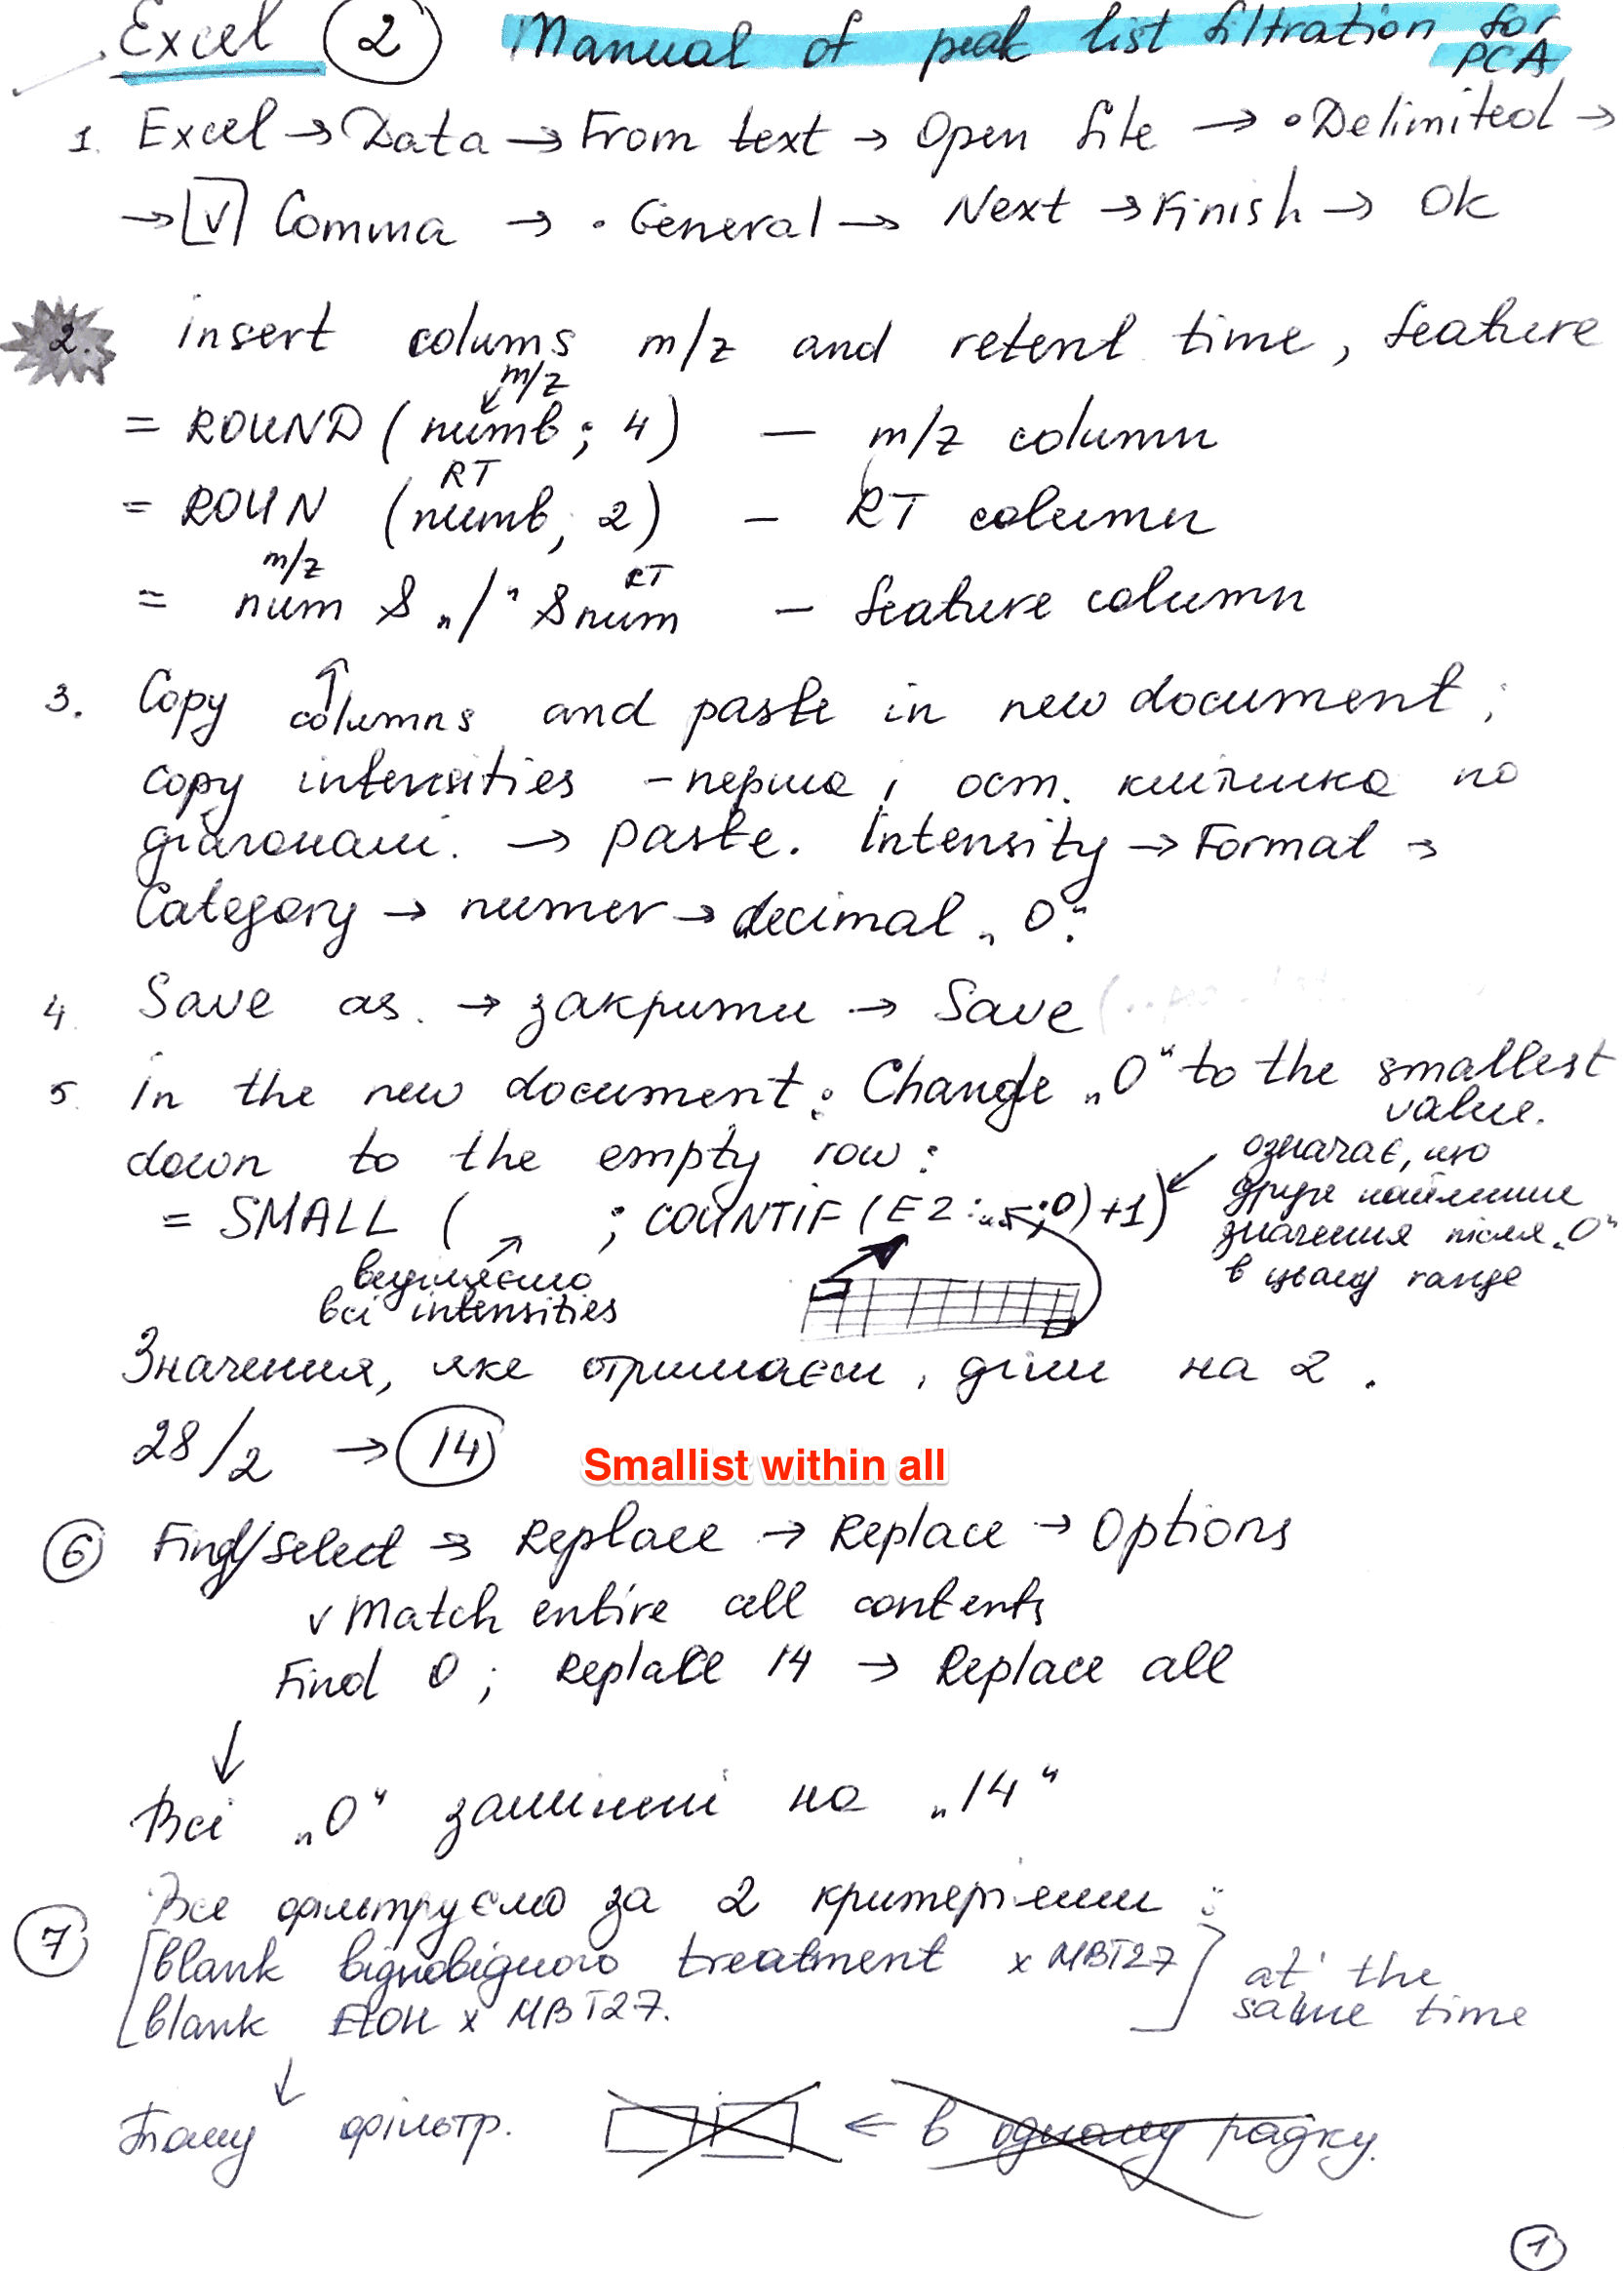 Excel 2 Manual of peak list filtration for
PCA
1. Excel → Data → From text → Open file → • Delimited →
→ [v] Comma → • General → Next → Finish → Ok
2. insert colums m/z and retent. time, feature
m/z
= ROUND (numb; 4) — m/z column
RT
= ROUN (numb; 2) – RT column
m/z RT
= num & „/" & num – feature column
3. Copy columns and paste in new document;
copy intensities – перша і ост. клітинка по
діагоналі. → paste. Intensity → Format →
Category → numer → decimal „0".
4. Save as. → закрити → Save
5. in the new document: Change „0" to the smallest
value.
down to the empty row:
= SMALL ( ; COUNTIF (E2: ;0)+1)
означає, що
друге найменше
значення після „0"
в цьому range
всі intensities
Значення, яке отримаєш, діли на 2.
28/2 → 14
Smallist within all
6 Find/Select → Replace → Replace → Options
v Match entire cell contents
Find 0; Replace 14 → Replace all
↓
Всі „0" замінені на „14"
7 Все фільтруємо за 2 критеріями:
blank відповідного treatment x MBT27
blank EtOH x MBT27.
at the
same time
↓
Тому фільтр. ← в одному рядку.
1